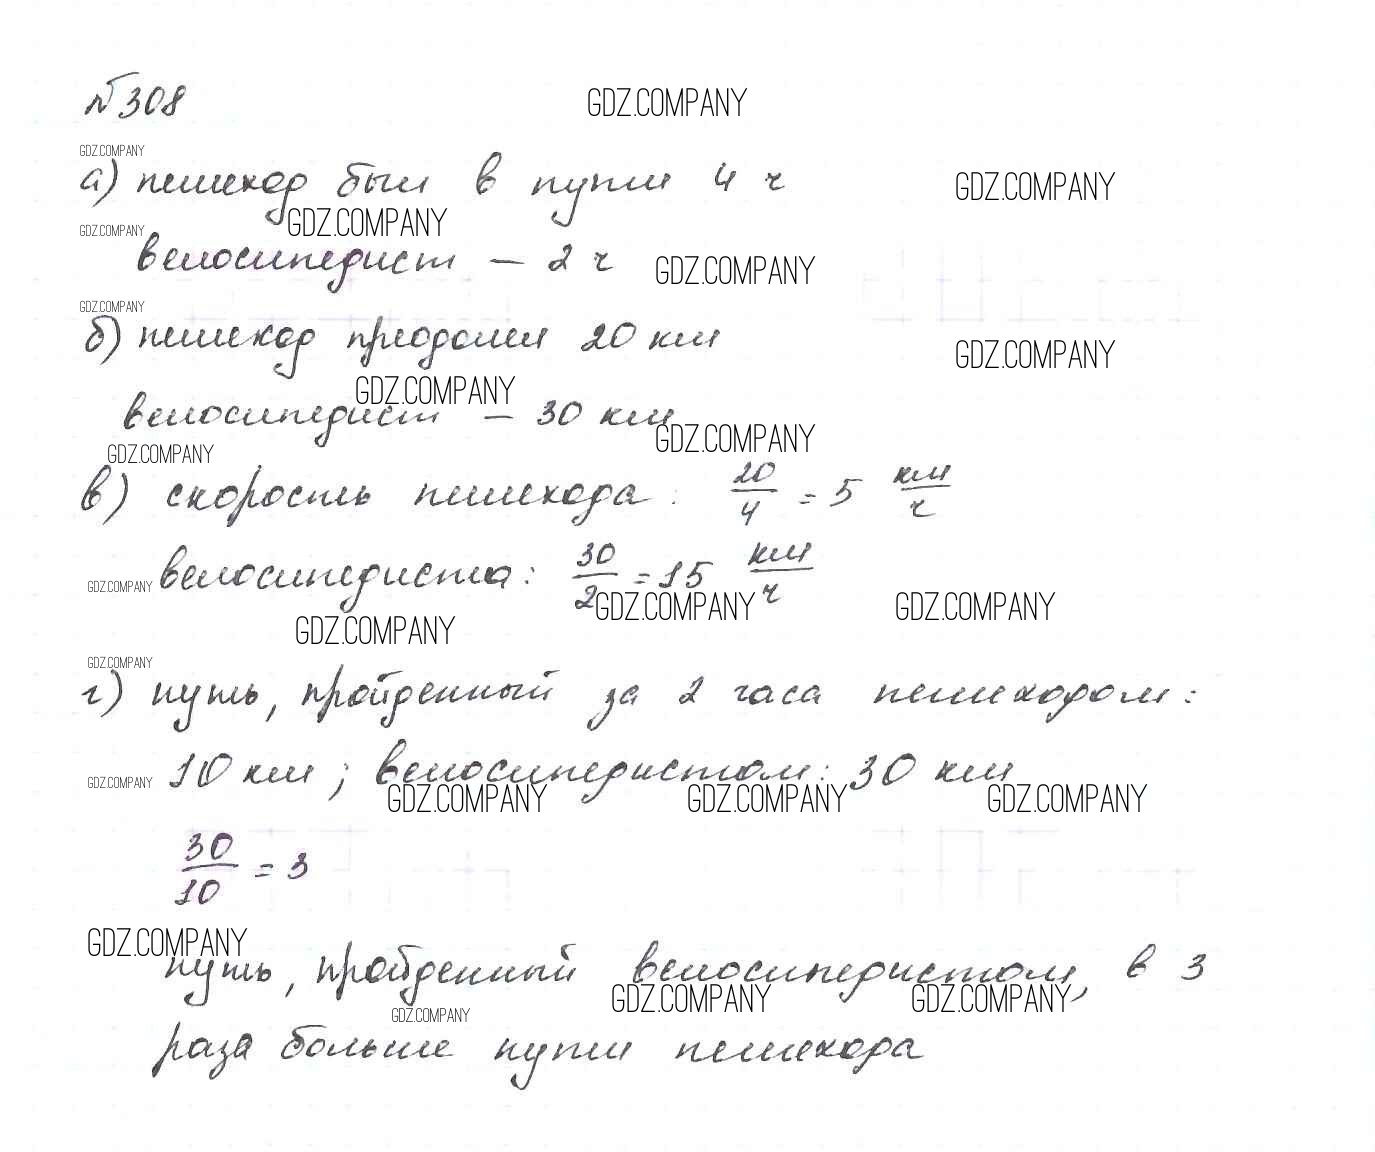 №308
GDZ.COMPANY
GDZ.COMPANY
а) пешеход был в пути 4 ч
GDZ.COMPANY
GDZ.COMPANY
GDZ.COMPANY
велосипедист – 2 ч
GDZ.COMPANY
GDZ.COMPANY
б) пешеход преодолел 20 км
GDZ.COMPANY
GDZ.COMPANY
велосипедист – 30 км
GDZ.COMPANY
GDZ.COMPANY
в) скорость пешехода: 20/4 = 5 км/ч
GDZ.COMPANY
велосипедиста: 30/2 = 15 км/ч
GDZ.COMPANY
GDZ.COMPANY
GDZ.COMPANY
GDZ.COMPANY
г) путь, пройденный за 2 часа пешеходом:
GDZ.COMPANY
10 км; велосипедистом: 30 км
GDZ.COMPANY
GDZ.COMPANY
GDZ.COMPANY
30/10 = 3
GDZ.COMPANY
путь, пройденный велосипедистом, в 3
GDZ.COMPANY
GDZ.COMPANY
GDZ.COMPANY
раза больше пути пешехода